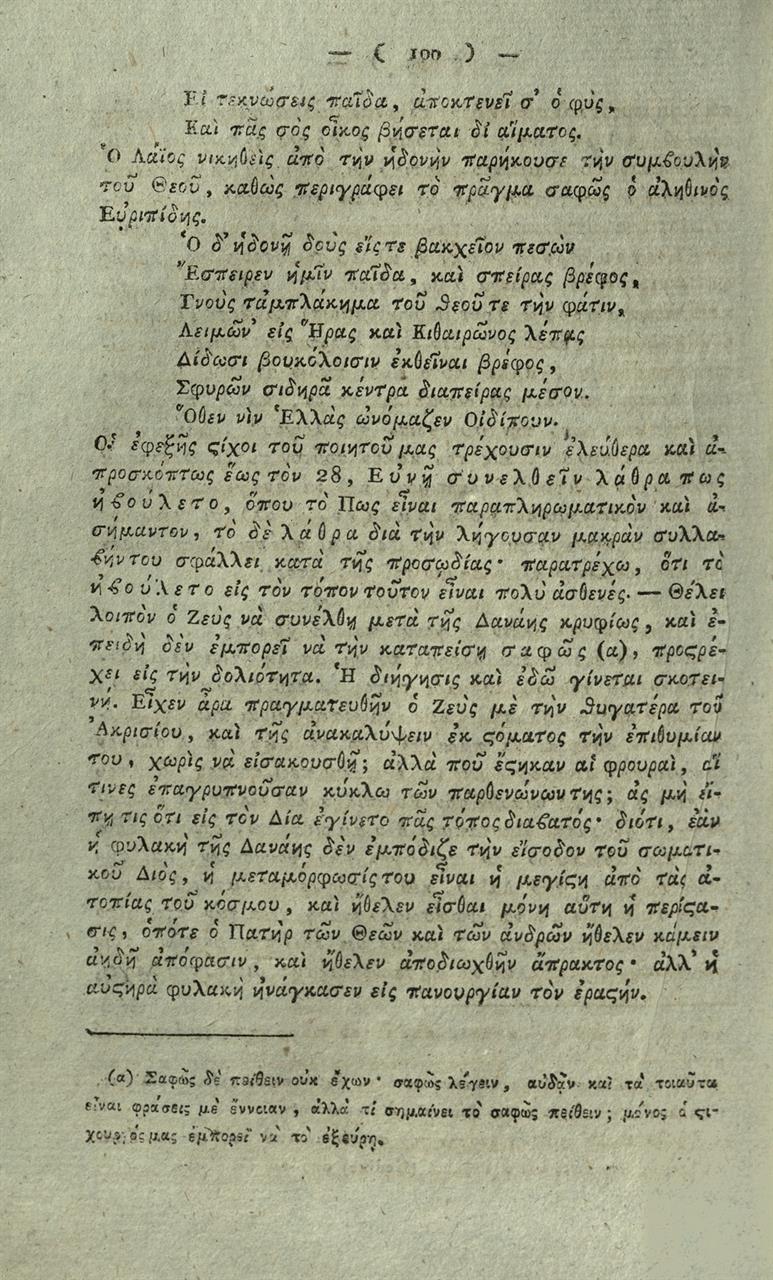 — ( 100 ) —
Εἰ τεκνώσεις παῖδα, ἀποκτενεῖ σ' ὁ φὺς,
Καὶ πᾶς σὸς οἶκος βήσεται δι' αἵματος.
Ὁ Λάϊος νικηθεὶς ἀπὸ τὴν ἡδονὴν παρήκουσε τὴν συμϐουλὴν
τοῦ Θεοῦ, καθὼς περιγράφει τὸ πρᾶγμα σαφῶς ὁ ἀληθινὸς
Εὐριπίδης.
Ὁ δ' ἡδονῇ δοὺς εἴς τε βακχεῖον πεσὼν
Ἔσπειρεν ἡμῖν παῖδα, καὶ σπείρας βρέφος,
Γνοὺς τἀμπλάκημα τοῦ ϑεοῦ τε τὴν φάτιν,
Λειμῶν' εἰς Ἥρας καὶ Κιθαιρῶνος λέπας
Δίδωσι βουκόλοισιν ἐκθεῖναι βρέφος,
Σφυρῶν σιδηρᾶ κέντρα διαπείρας μέσον.
Ὅθεν νὶν Ἑλλὰς ὠνόμαζεν Οἰδίπουν.
Οἱ ἐφεξῆς ϛίχοι τοῦ ποιητοῦ μας τρέχουσιν ἐλεύθερα καὶ ἀ-
προσκόπτως ἕως τὸν 28, Εὐνῇ συνελθεῖν λάθρα πως
ἠϐούλετο, ὅπου τὸ Πως εἶναι παραπληρωματικὸν καὶ ἀ-
σήμαντον, τὸ δὲ λάθρα διὰ τὴν λήγουσαν μακρὰν συλλα-
ϐήν του σφάλλει κατὰ τῆς προσῳδίας· παρατρέχω, ὅτι τὸ
ἠϐούλετο εἰς τὸν τόπον τοῦτον εἶναι πολὺ ἀσθενές. — Θέλει
λοιπὸν ὁ Ζεὺς νὰ συνέλθῃ μετὰ τῆς Δανάης κρυφίως, καὶ ἐ-
πειδὴ δὲν ἐμπορεῖ νὰ τὴν καταπείσῃ σαφῶς (α), προϛρέ-
χει εἰς τὴν δολιότητα. Ἡ διήγησις καὶ ἐδῶ γίνεται σκοτει-
νή. Εἶχεν ἆρα πραγματευθῆν ὁ Ζεὺς μὲ τὴν ϑυγατέρα τοῦ
Ἀκρισίου, καὶ τῆς ἀνακαλύψειν ἐκ ϛόματος τὴν ἐπιθυμίαν
του, χωρὶς νὰ εἰσακουσθῇ; ἀλλὰ ποῦ ἔϛηκαν αἱ φρουραὶ, αἵ
τινες ἐπαγρυπνοῦσαν κύκλω τῶν παρθενώνων της; ἂς μὴ εἴ-
πῃ τις ὅτι εἰς τὸν Δία ἐγίνετο πᾶς τόπος διαϐατός· διότι, ἐὰν
ἡ φυλακὴ τῆς Δανάης δὲν ἐμπόδιζε τὴν εἴσοδον τοῦ σωματι-
κοῦ Διὸς, ἡ μεταμόρφωσίς του εἶναι ἡ μεγίϛη ἀπὸ τὰς ἀ-
τοπίας τοῦ κόσμου, καὶ ἤθελεν εἶσθαι μόνη αὕτη ἡ περίϛα-
σις, ὁπότε ὁ Πατὴρ τῶν Θεῶν καὶ τῶν ἀνδρῶν ἤθελεν κάμειν
ἀηδῆ ἀπόφασιν, καὶ ἤθελεν ἀποδιωχθῆν ἄπρακτος· ἀλλ' ἡ
αὐϛηρὰ φυλακὴ ἠνάγκασεν εἰς πανουργίαν τὸν ἐραϛήν.
(α) Σαφῶς δὲ πείθειν οὐκ ἔχων· σαφῶς λέγειν, αὐδᾷν καὶ τὰ τοιαῦτα
εἶναι φράσεις μὲ ἔννοιαν, ἀλλὰ τί σημαίνει τὸ σαφῶς πείθειν; μόνος ὁ ϛι-
χουργός μας ἐμπορεῖ νὰ τὸ ἐξεύρῃ.